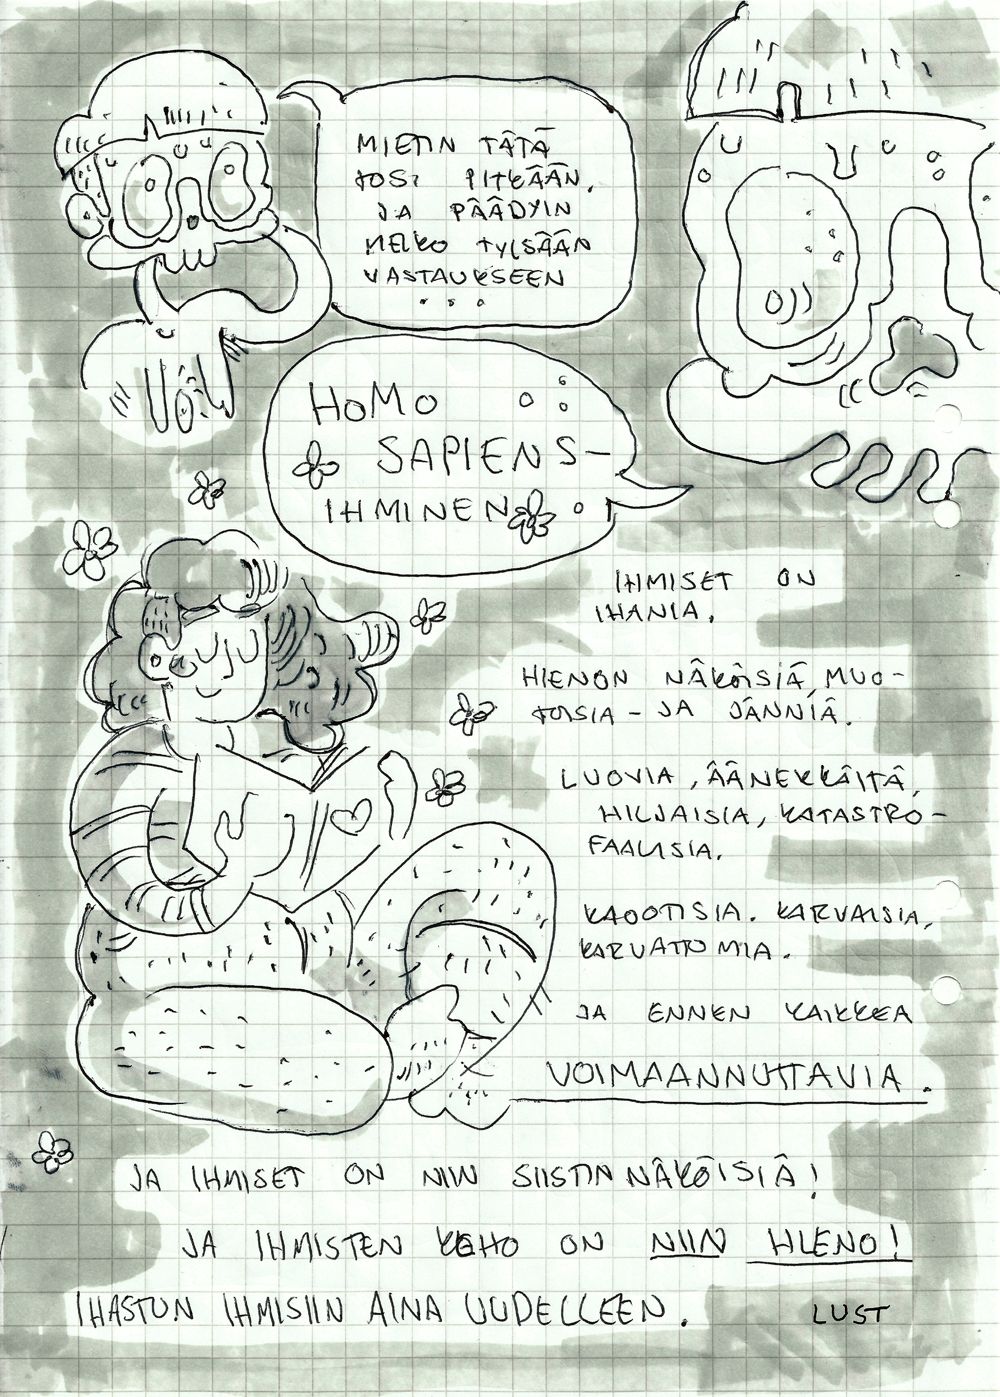 MIETIN TÄTÄ
TOSI PITKÄÄN.
JA PÄÄDYIN
MELKO TYLSÄÄN
VASTAUKSEEN
...
HOMO
SAPIENS-
IHMINEN
IHMISET ON
IHANIA.
HIENON NÄKÖISIÄ, MUO-
TOISIA - JA JÄNNIÄ.
LUOVIA, ÄÄNEKKÄITÄ,
HILJAISIA, KATASTRO-
FAALISIA.
KAOOTISIA. KARVAISIA,
KARVATTOMIA.
JA ENNEN KAIKKEA
VOIMAANNUTTAVIA.
JA IHMISET ON NIIN SIISTIN NÄKÖISIÄ!
JA IHMISTEN KEHO ON NIIN HIENO!
IHASTUN IHMISIIN AINA UUDELLEEN.
LUST